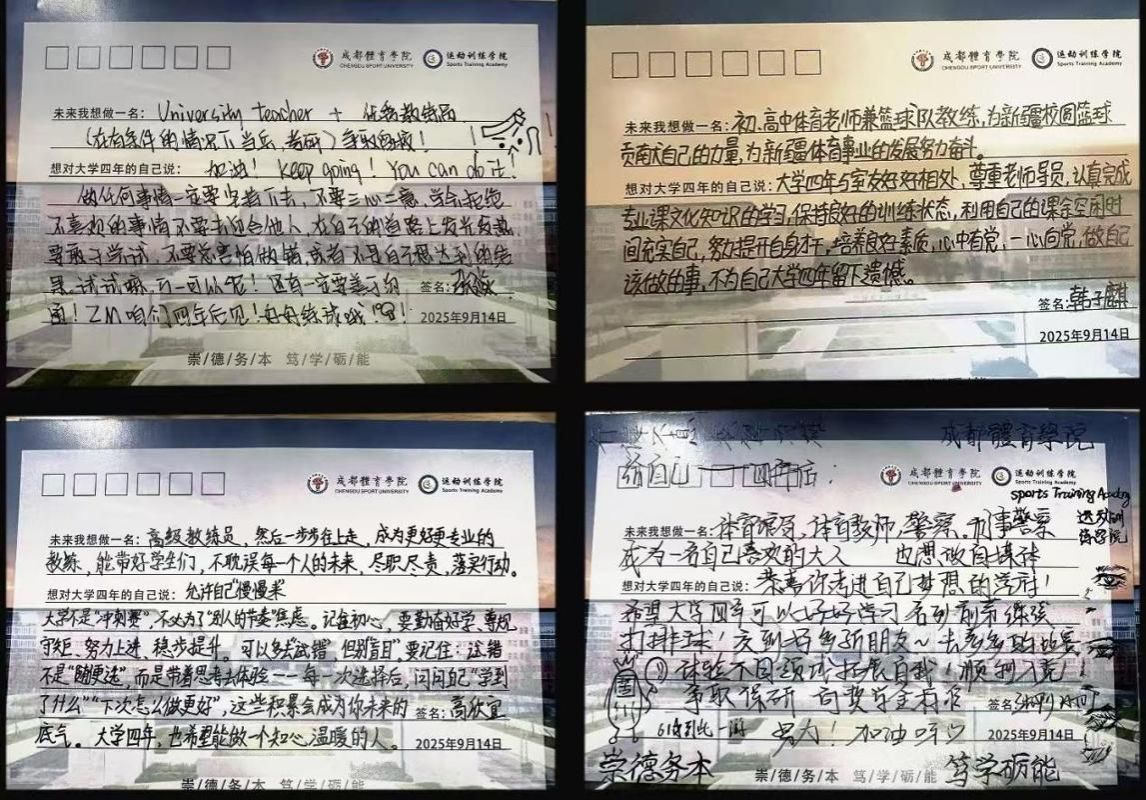 成都體育學院 运动训练学院
CHENGDU SPORT UNIVERSITY Sports Training Academy
未来我想做一名: University teacher + 优秀教练员
(在有条件的情况下当兵、考研)争取
想对大学四年的自己说: 加油! Keep going! You can do it!
做任何事情一定要坚持下去,不要三心二意,学会拒绝
不喜欢的事情不要去迎合他人,在自己的道路上发光发热
要敢于尝试,不要总害怕做错,或者不是自己想达到的结
果,试试嘛,万一可以呢!还有一定要 签名:
四年后见!好好练球哦! 2025年9月14日
崇/德/务/本 笃/学/砺/能
成都體育學院 运动训练学院
CHENGDU SPORT UNIVERSITY Sports Training Academy
未来我想做一名: 初、高中体育老师兼篮球队教练,为新疆校园篮球
贡献自己的力量,为新疆体育事业的发展努力奋斗。
想对大学四年的自己说: 大学四年与室友好好相处,尊重老师导员,认真完成
专业课文化知识的学习,保持良好的训练状态,利用自己的课余空闲时
间充实自己,努力提升自身才干,培养良好素质,心中有党,一心向党,做自己
该做的事,不为自己大学四年留下遗憾。
签名: 韩子麒
2025年9月14日
成都體育學院 运动训练学院
CHENGDU SPORT UNIVERSITY Sports Training Academy
未来我想做一名: 高级教练员,然后一步步往上走,成为更好更专业的
教练,能带好学生们,不耽误每一个人的未来,尽职尽责,落实行动。
想对大学四年的自己说: 允许自己“慢慢来”
大学不是“冲刺赛”,不必为了“别人的节奏”焦虑。记住初心,要勤奋好学、尊规
守矩、努力上进、稳步提升。可以多去“试错”,但别盲目,要记住:试错
不是“随便选”,而是带着思考去体验——每一次选择后,问问自己“学到
了什么”“下次怎么做更好”,这些积累会成为你未来的 签名: 高欣宜
底气。大学四年,也希望能做个知心温暖的人。 2025年9月14日
崇/德/务/本 笃/学/砺/能
成都體育學院
给自己 四年后:
成都體育學院 运动训练学院
CHENGDU SPORT UNIVERSITY Sports Training Academy
sports Training Academy
未来我想做一名: 体育教师、警察、刑事警察
成为一名自己喜欢的大人 也想做自媒体
想对大学四年的自己说: 恭喜你考进自己梦想的学府!
希望大学四年可以好好学习名列前茅练强
打排球!交到好多新朋友~去多多的比赛
体验不同领域拓展自我!顺利入党!
争取保研 奖学金 签名:
到此一游 努力!加油 2025年9月14日
崇德务本 崇/德/务/本 笃/学/砺/能 笃学砺能